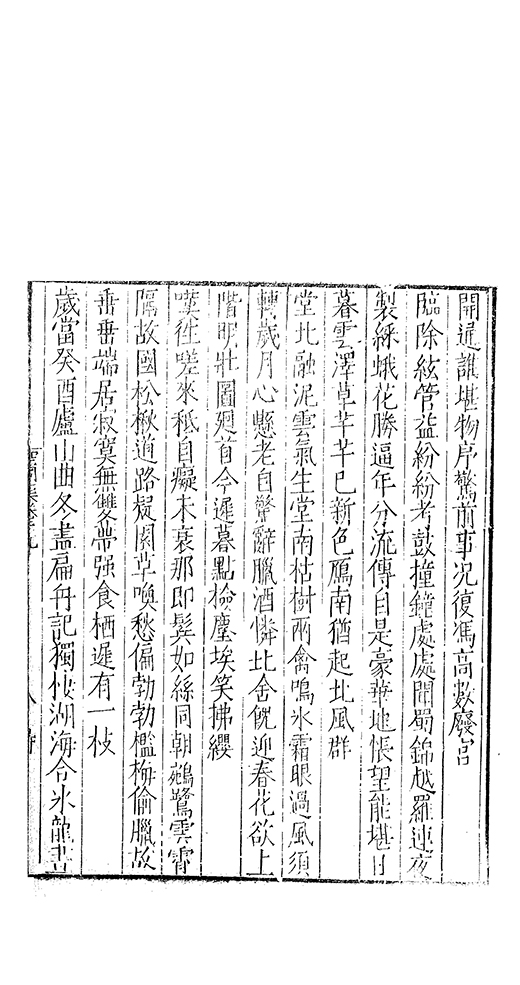 開通誰堪物序驚前事况復馮高數廢宮
臨除絃管益紛紛考鼓撞鐘處處開蜀錦越羅連夜
製綵蛾花勝逼年分流傳自是豪華地悵望能堪日
暮雲澤草芊芊已新色鴈南猶起北風群
堂北融泥雲氣生堂南枯樹兩禽鳴氷霜眼過風須
轉歲月心懸老自驚辭臘酒憐比舍餽迎春花欲上
階明壯圖廻首今遲暮點檢塵埃笑拂纓
嘆往嗟來秪自癡未衰那即髩如絲同朝鵷鷺雲霄
隔故國松楸道路疑閡草喚愁偏勃勃檻梅偷臘故
垂垂端居寂寞無雙帶强食栖遲有一枝
歲當癸酉廬山曲冬盡扁舟記獨棲湖海合氷龍晝